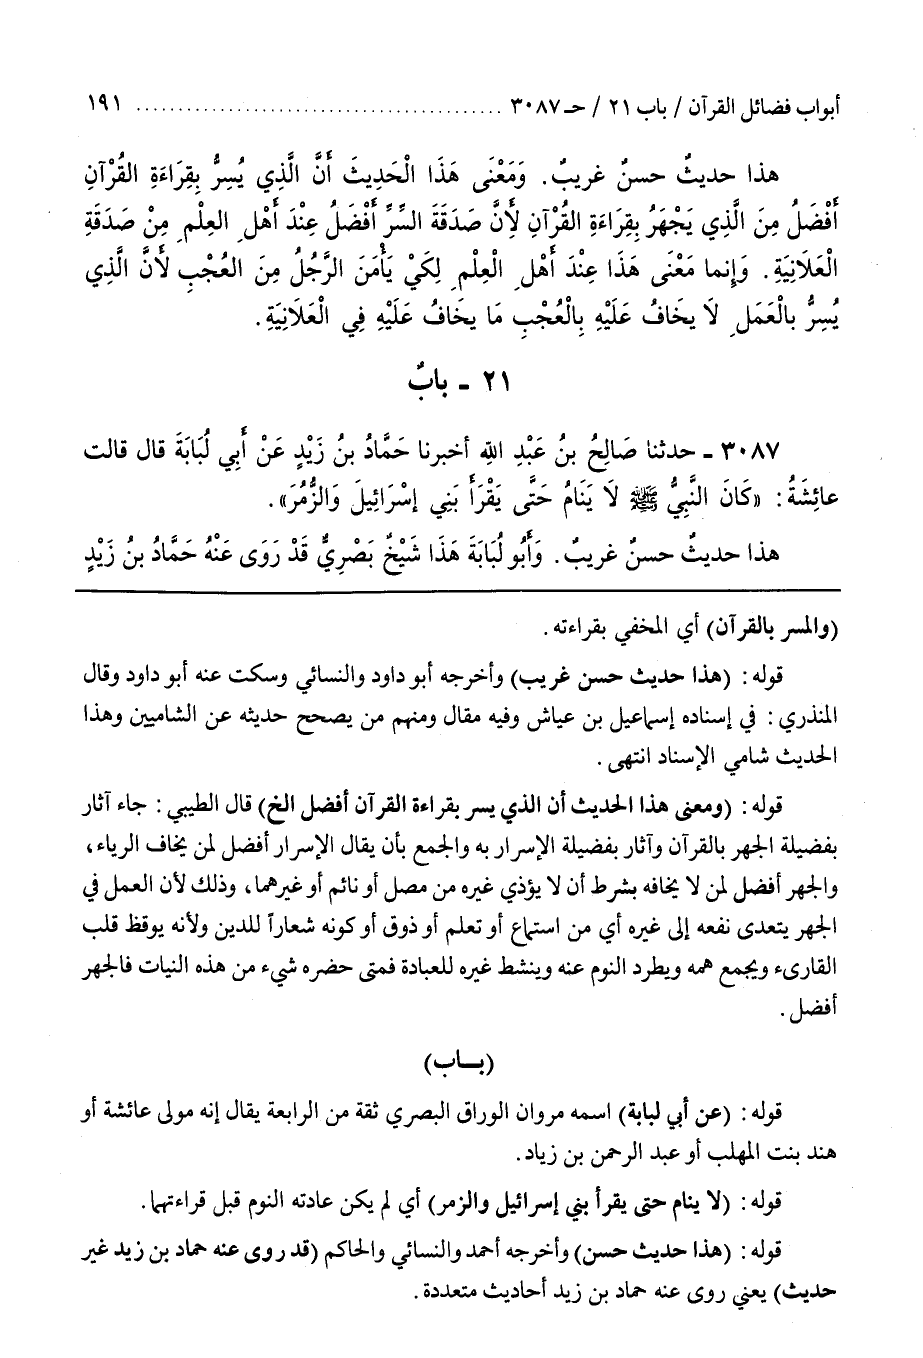 أبواب فضائل القرآن / باب ٢١ / حـ ٣٠٨٧ ............................................ ١٩١
هذا حديثٌ حسنٌ غريبٌ. وَمَعْنَى هَذَا الْحَدِيثَ أَنَّ الَّذِي يُسِرُّ بِقِرَاءَةِ القُرْآنِ
أَفْضَلُ مِنَ الَّذِي يَجْهَرُ بِقِرَاءَةِ القُرْآنِ لِأَنَّ صَدَقَةَ السِّرِّ أَفْضَلُ عِنْدَ أَهْلِ العِلْمِ مِنْ صَدَقَةِ
الْعَلَانِيَةِ. وَإِنما مَعْنَى هَذَا عِنْدَ أَهْلِ الْعِلْمِ لِكَيْ يَأْمَنَ الرَّجُلُ مِنَ العُجْبِ لأَنَّ الَّذِي
يُسِرُّ بالْعَمَلِ لَا يخافُ عَلَيْهِ بِالْعُجْبِ مَا يخافُ عَلَيْهِ فِي الْعَلَانِيَةِ.
٢١ - بابٌ
٣٠٨٧ - حدثنا صَالِحُ بنُ عَبْدِ اللهِ أخبرنا حَمَّادُ بنُ زَيْدٍ عَنْ أَبِي لُبَابَةَ قال قالت
عائِشَةُ: «كَانَ النَّبِيُّ ﷺ لَا يَنَامُ حَتَّى يَقْرَأَ بَنِي إِسْرَائِيلَ وَالزُّمَرَ».
هذا حديثٌ حسنٌ غريبٌ. وَأَبُو لُبَابَةَ هَذَا شَيْخٌ بَصْرِيٌّ قَدْ رَوَى عَنْهُ حَمَّادُ بنُ زَيْدٍ
(والمسر بالقرآن) أي المخفي بقراءته.
قوله: (هذا حديث حسن غريب) وأخرجه أبو داود والنسائي وسكت عنه أبو داود وقال
المنذري: في إسناده إسماعيل بن عياش وفيه مقال ومنهم من يصحح حديثه عن الشاميين وهذا
الحديث شامي الإسناد انتهى.
قوله: (ومعنى هذا الحديث أن الذي يسر بقراءة القرآن أفضل الخ) قال الطيبي: جاء آثار
بفضيلة الجهر بالقرآن وآثار بفضيلة الإسرار به والجمع بأن يقال الإسرار أفضل لمن يخاف الرياء،
والجهر أفضل لمن لا يخافه بشرط أن لا يؤذي غيره من مصل أو نائم أو غيرهما، وذلك لأن العمل في
الجهر يتعدى نفعه إلى غيره أي من استماع أو تعلم أو ذوق أو كونه شعاراً للدين ولأنه يوقظ قلب
القارىء ويجمع همه ويطرد النوم عنه وينشط غيره للعبادة فمتى حضره شيء من هذه النيات فالجهر
أفضل.
(بــاب)
قوله: (عن أبي لبابة) اسمه مروان الوراق البصري ثقة من الرابعة يقال إنه مولى عائشة أو
هند بنت المهلب أو عبد الرحمن بن زياد.
قوله: (لا ينام حتى يقرأ بني إسرائيل والزمر) أي لم يكن عادته النوم قبل قراءتهما.
قوله: (هذا حديث حسن) وأخرجه أحمد والنسائي والحاكم (قد روى عنه حماد بن زيد غير
حديث) يعني روى عنه حماد بن زيد أحاديث متعددة.